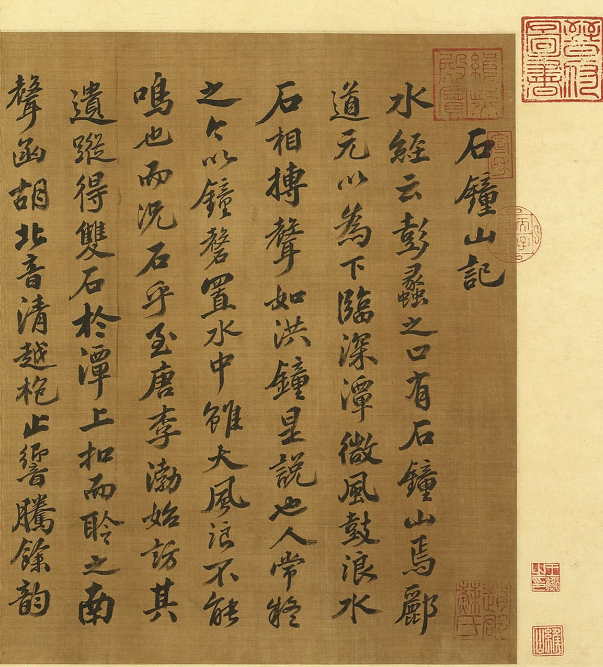 晉府圖書
緝熙殿寶
石鐘山記
水經云彭蠡之口有石鐘山焉酈
道元以為下臨深潭微風鼓浪水
石相搏聲如洪鐘是說也人常疑
之今以鐘磬置水中雖大風浪不能
鳴也而況石乎至唐李渤始訪其
遺蹤得雙石於潭上扣而聆之南
聲函胡北音清越枹止響騰餘韵
趙郡蘇氏